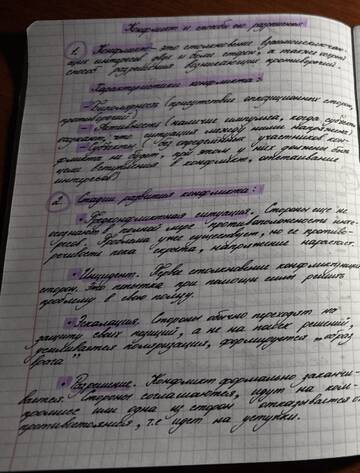 Конфликт и способы его разрешения
1. Конфликт - это столкновение взаимоисключаю-
щих интересов двух и более сторон, а также острый
способ разрешения возникающих противоречий.
Характеристики конфликта:
- Биполярность (присутствие оппозиционных сторон,
противоречий)
- Активность (наличие импульса, когда
что ситуация между ними напряжена)
- Субъекты (без определённых участников кон-
фликта не будет, при этом у них должны быть
вступления в конфликт, отстаивания
интересов)
2. Стадии развития конфликта:
• Предконфликтная ситуация. Стороны ещё не
осознают в полной мере противоположность инте-
ресов. Проблема уже существует, но её противо-
речивость пока скрыта, напряжение нарастает.
• Инцидент. Первое столкновение конфликтующих
сторон. Это попытка при помощи силы решить
проблему в свою пользу.
• Эскалация. Стороны обычно переходят на
защиту своих позиций, а не на поиск решений,
усиливается поляризация, формируется „образ
врага"
• Разрешение. Конфликт формально заканчи-
вается. Стороны соглашаются, идут на ком-
промисс или одна из сторон отказывается от
противостояния, т.е идёт на уступки.